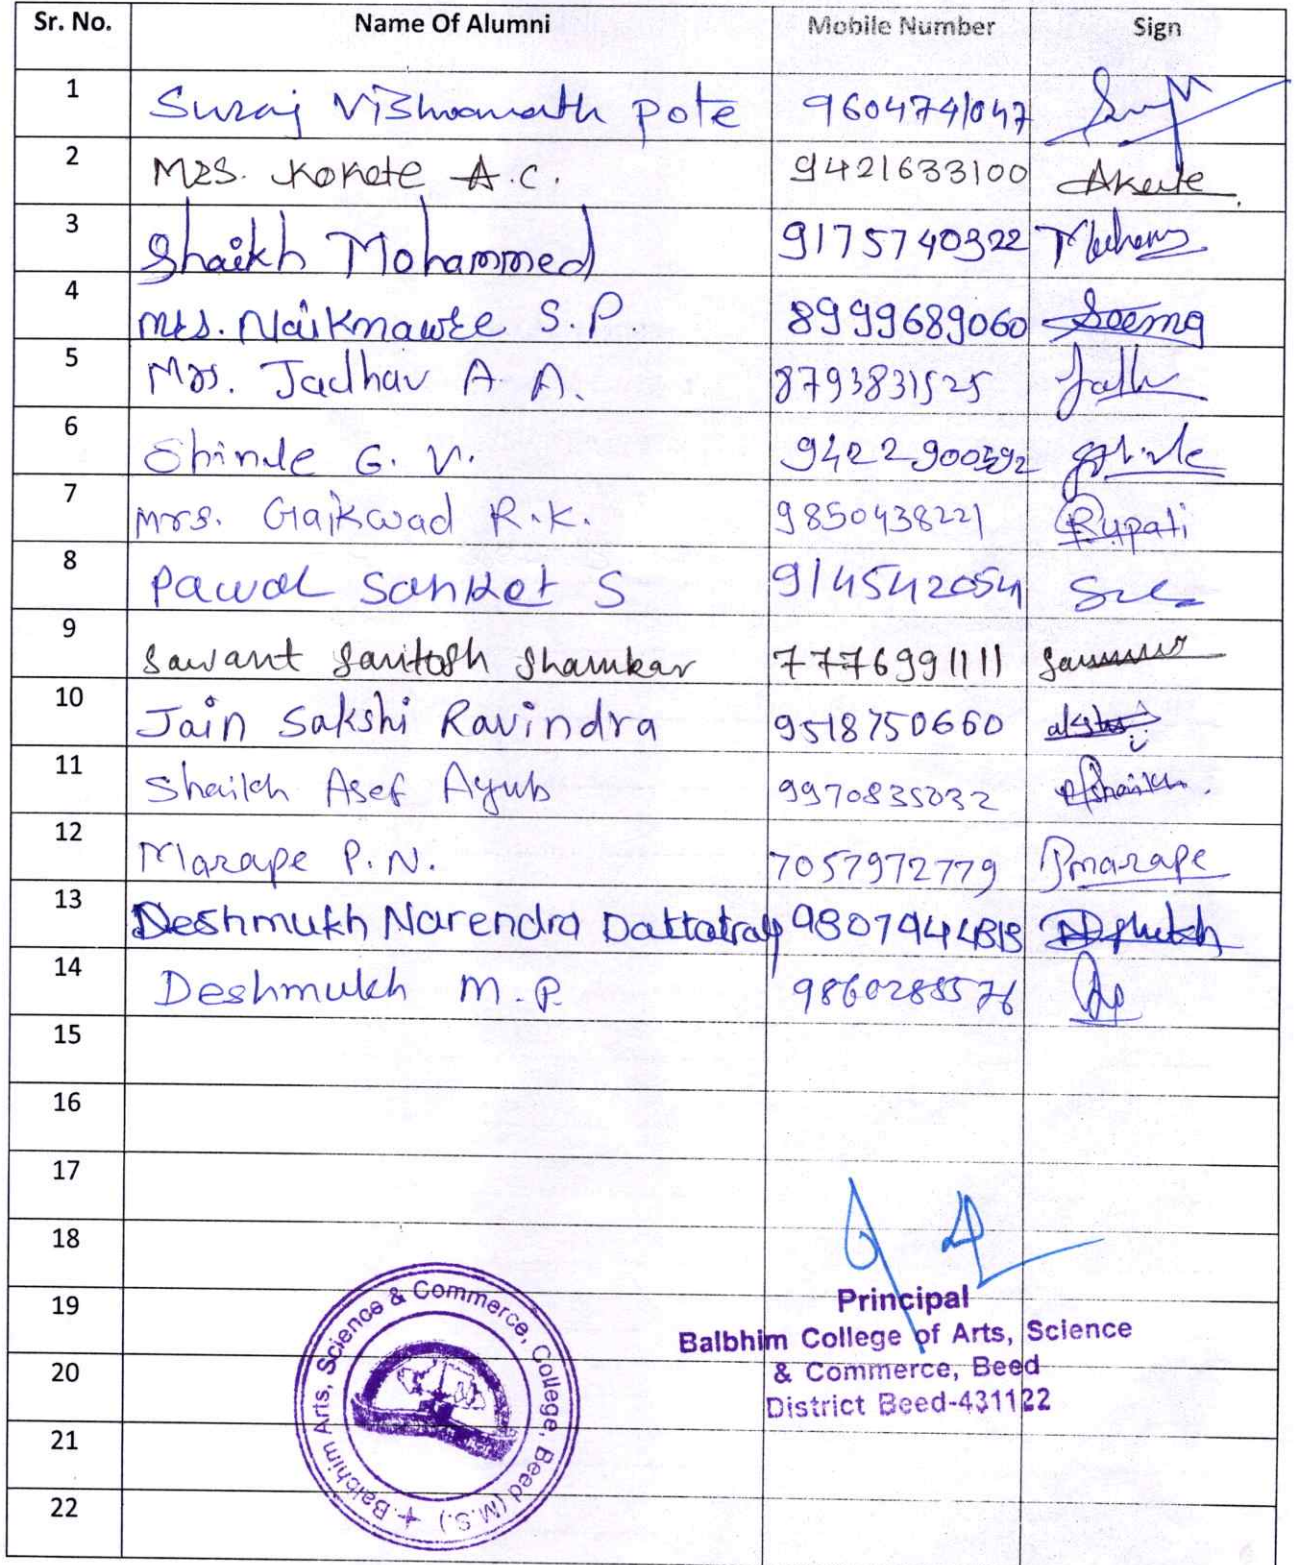 Sr. No. Name Of Alumni Mobile Number Sign
1 Suraj Vishwanath pote 9604741047
2 Mrs. Kokate A.C. 9421633100 Akate
3 Shaikh Mohammed 9175740322
4 Mrs. Naiknaware S.P 8999689060 Seema
5 Mrs. Jadhav A.A. 8793831525
6 Shinde G. V. 9422900592
7 Mrs. Gaikwad R.K. 9850438221 Rupali
8 Pawar Sanket S 9145542054
9 Sawant Santosh Shamkar 7776991111
10 Jain Sakshi Ravindra 9518750660
11 Shaikh Asef Ayub 9970835032 Afshaikh.
12 Marape P.N. 7057972779 Pmarape
13 Deshmukh Narendra Dattatray
14 Deshmukh M.P. 9860285576
15
16
17
18
19
20
21
22
Principal
Balbhim College of Arts, Science
& Commerce, Beed
District Beed-431122
Balbhim Arts, Science & Commerce, College, Beed (M.S.)